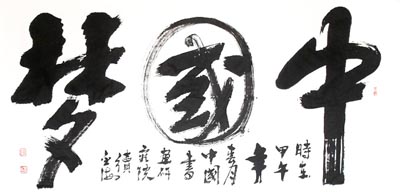 中國夢
時在
甲午
春月
中國
書
畫研
究院